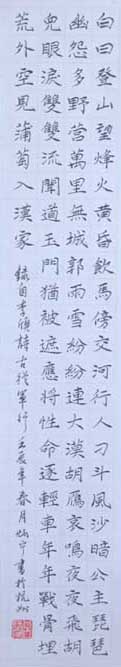 白日登山望烽火黄昏飲馬傍交河行人刁斗風沙暗公主琵琶
幽怨多野營萬里無城郭雨雪紛紛連大漠胡鴈哀鳴夜夜飛胡
兒眼淚雙雙流聞道玉門猶被遮應將性命逐輕車年年戰骨埋
荒外空見蒲萄入漢家
錄自李頎詩古從軍行壬辰年春月書於杭州